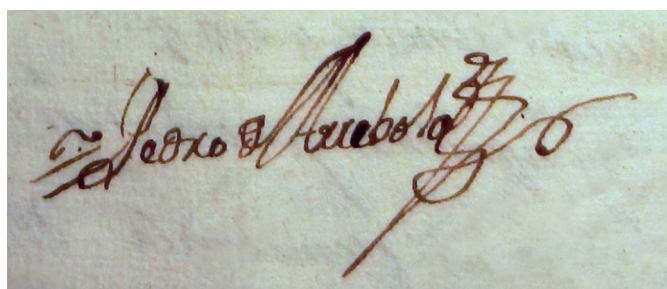 Pedro de Arrebola